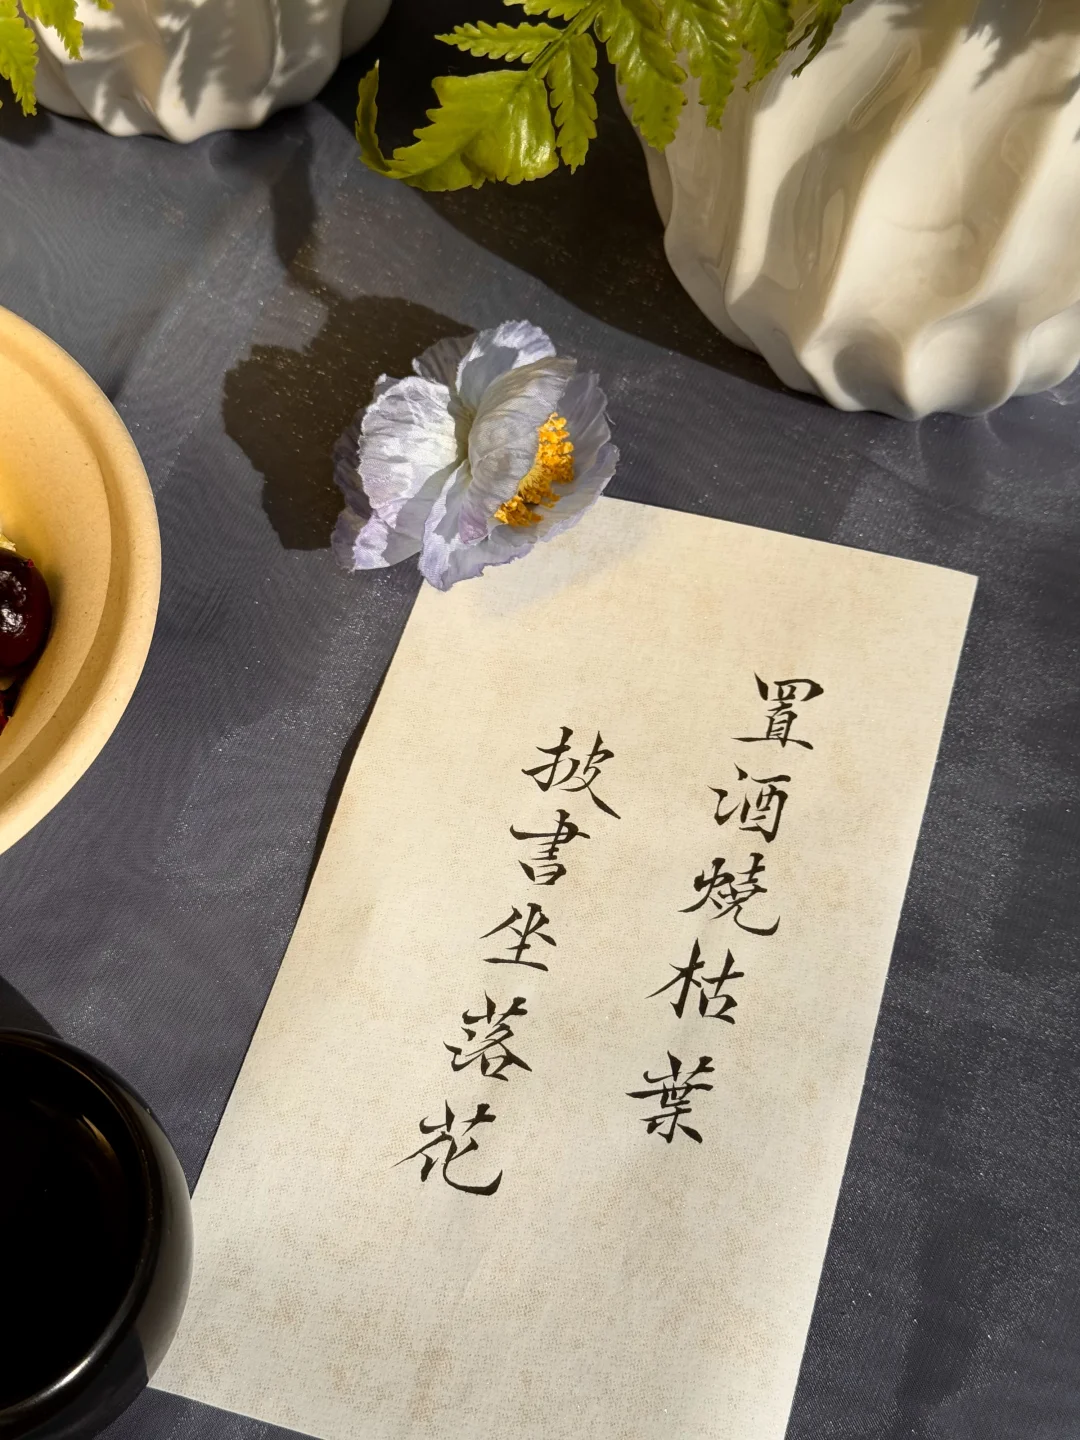 置酒燒枯葉
披書坐落花